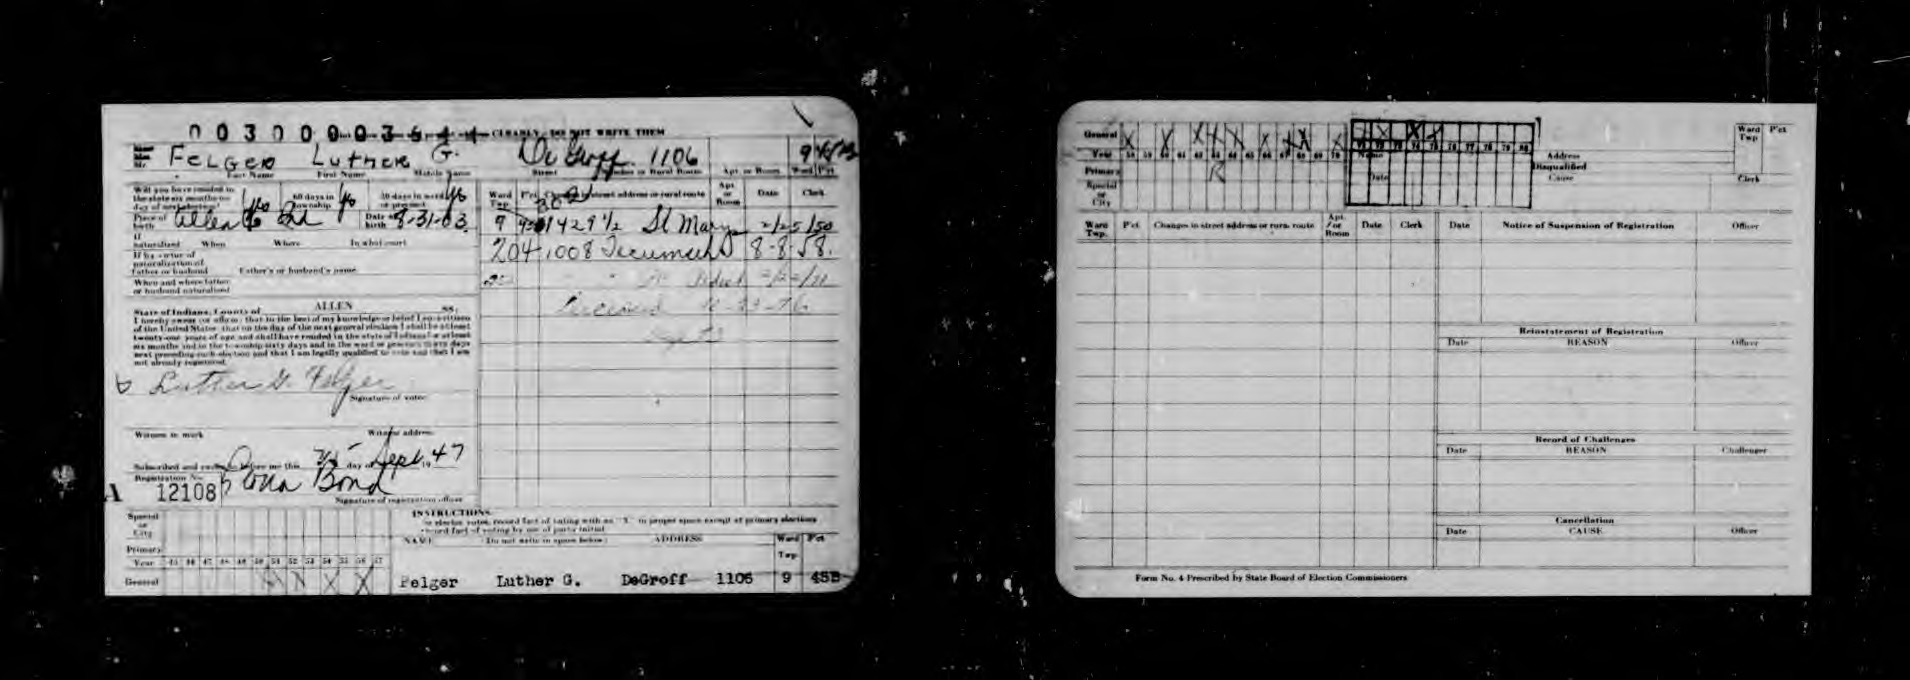 CLEARLY DO NOT WRITE THEM
FELGER LUTHER G. DeGroff 1106 9
Last Name First Name Middle Name Street Number or Rural Route Apt. or Room Ward Pct
Will you have resided in the state six months on day of next election? Yes 60 days in township Yes 30 days in ward or precinct Yes
Ward Twp Pct Changes in street address or rural route Apt. or Room Date Clerk
Place of birth Allen Co Ind Date of birth 8-31-03
9 1429 1/2 St Marys 2/25/50
If naturalized When Where In what court
204 1008 Tecumseh 8-8-58.
If by virtue of naturalization of Father or husband Father's or husband's name
When and where father or husband naturalized
State of Indiana, County of ALLEN SS:
I hereby swear (or affirm) that to the best of my knowledge or belief I am a citizen
of the United States; that on the day of the next general election I shall be at least
twenty-one years of age and shall have resided in the state of Indiana for at least
six months and in the township sixty days and in the ward or precinct thirty days
next preceding such election and that I am legally qualified to vote and that I am
not already registered.
Luther G. Felger
Signature of voter
Witness to mark Witness address
Subscribed and sworn to before me this day of Sept. 1947
Registration No.
A 12108 Bond
Signature of registration officer
INSTRUCTIONS
elector votes, record fact of voting with an "X" in proper space except at primary elections
record fact of voting by use of party initial
Special or City
Primary
NAME (Do not write in space below) ADDRESS Ward Twp. Pct
Year 45 46 47 48 49 50 51 52 53 54 55 56 57
General X X X X
Felger Luther G. DeGroff 1106 9 45B
General X X X X X X X X X X X X
Year 58 59 60 61 62 63 64 65 66 67 68 69 70 71 72 73 74 75 76 77 78 79 80
Name Address Ward Twp Pct
Primary R
Date Disqualified Cause Clerk
Special or City
Ward Twp. Pct Changes in street address or rural route Apt. or Room Date Clerk Date Notice of Suspension of Registration Officer
Reinstatement of Registration
Date REASON Officer
Record of Challenges
Date REASON Challenger
Cancellation
Date CAUSE Officer
Form No. 4 Prescribed by State Board of Election Commissioners